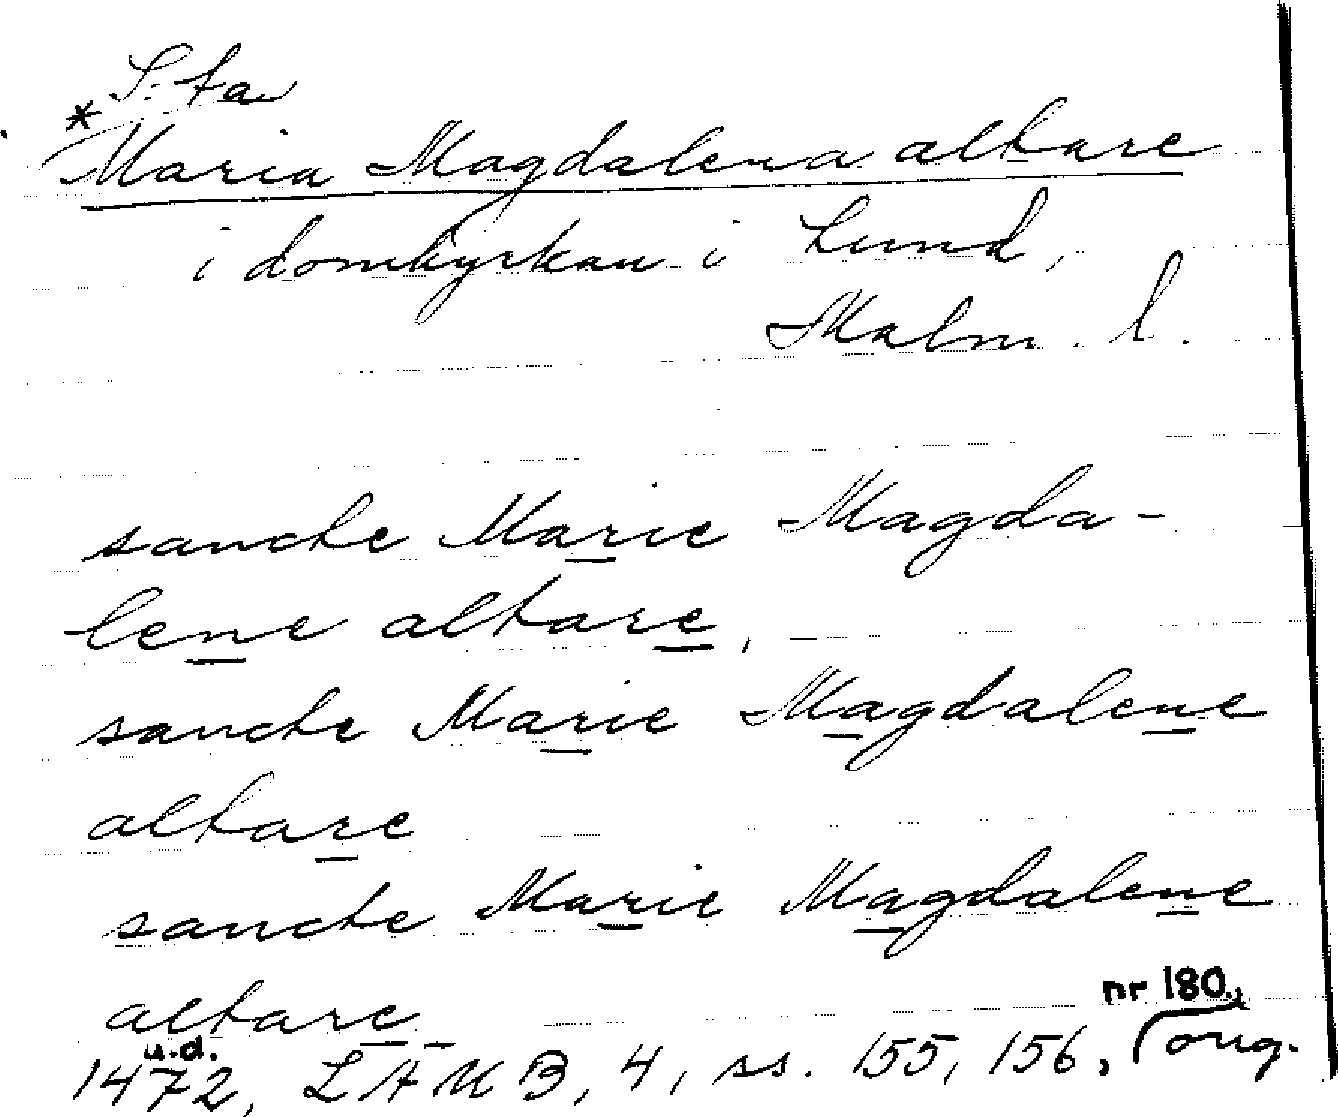 S:ta
* Maria Magdalena altare
i domkyrkan i Lund,
Malm. l.
sancte Marie Magda-
lene altare,
sancte Marie Magdalene
altare
sancte Marie Magdalene
altare
nr 180,
u.d.
1472, LÄUB, 4, ss. 155, 156, orig.